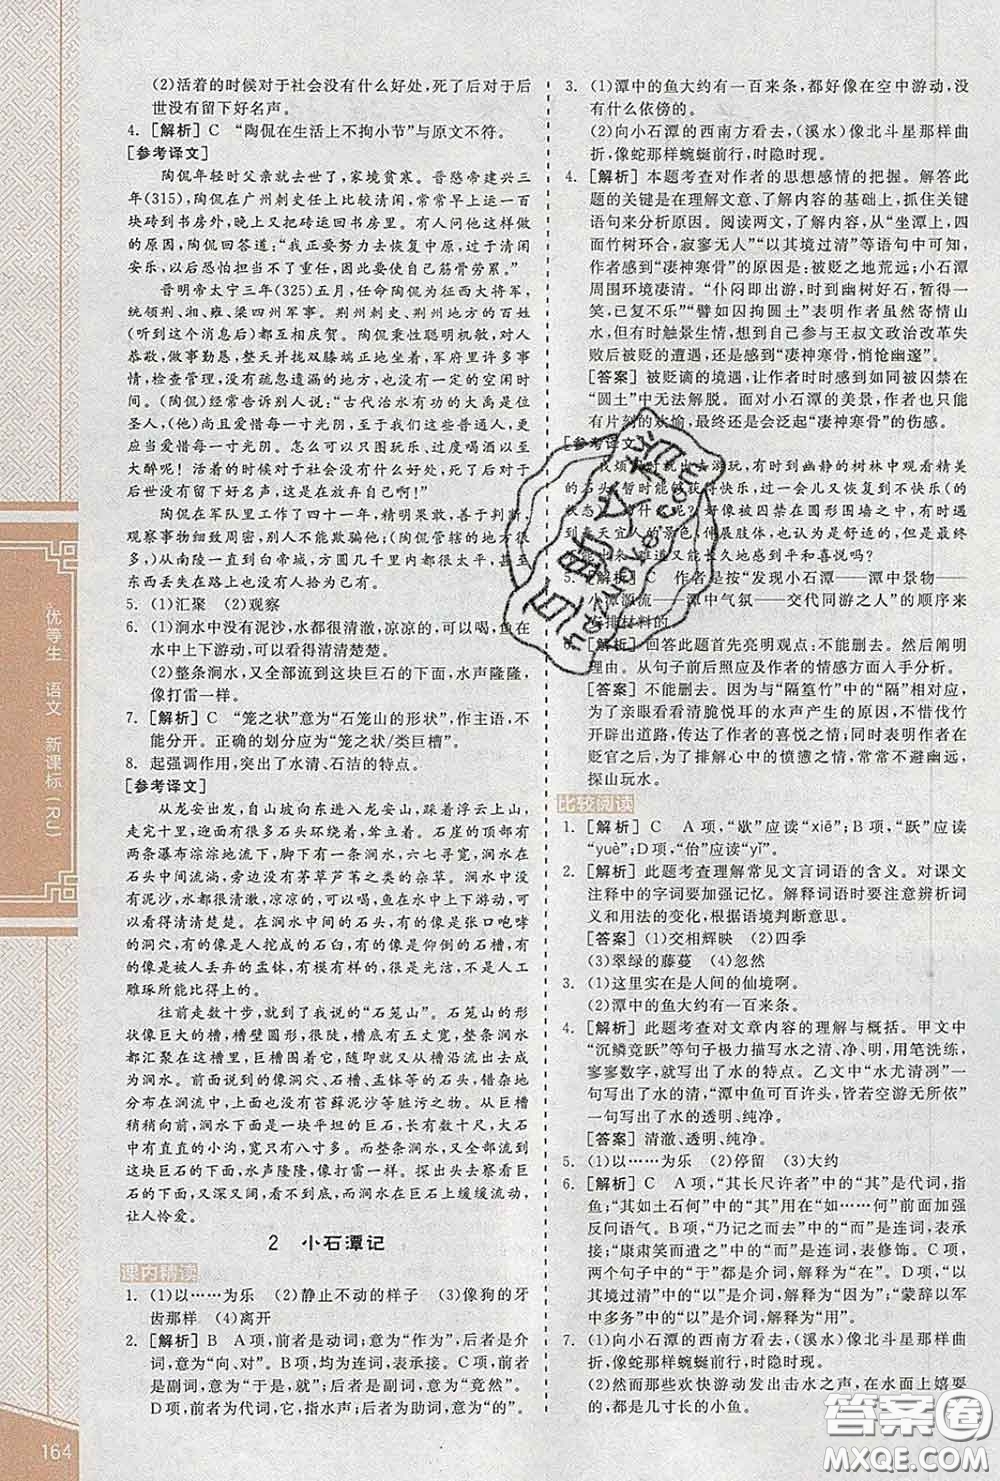 (2)活着的时候对于社会没有什么好处,死了后对于后
世没有留下好名声。
4. [解析] C “陶侃在生活上不拘小节”与原文不符。
[参考译文]
陶侃年轻时父亲就去世了,家境贫寒。晋愍帝建兴三
年(315),陶侃在广州刺史任上比较清闲,常常早上把一百
块砖到书房外,晚上又把砖运回书房里。有人问他这样做
的原因,陶侃回答道:“我正要努力去恢复中原,过于清闲
安乐,只怕难以担当大任,因此使自己筋骨劳累。”
晋明帝太宁三年(325)五月,任命陶侃为征西大将军,
统领荆、湘、雍、梁四州军事。荆州刺史、荆州地方的百姓
(听到这个消息后)都互相庆贺。陶侃秉性聪明机敏,对人
恭敬,做事勤勉,整天并拢双膝端正地坐着,军府里许多事
情,检查管理,没有忽略遗漏的地方,也没有一定的空闲时
间。(陶侃)经常告诉别人说:“古代治水有功的大禹是位
圣人,(他)尚且爱惜每一寸光阴,至于我们这些普通人,更
更应当爱惜每一寸光阴。怎么可以只图玩乐、过度喝酒以至
大醉呢!活着的时候对于社会没有什么好处,死了后对于
后世没有留下好名声,这是自己抛弃自己啊!”
陶侃在军队里工作了四十一年,精明果敢,善于判断,
观察事物细致周密,别人不能欺骗他。(陶侃管辖的地方)
从南陵一直到白帝城,方圆几千里中,如果有人在路上丢了
东西去捡拾的。
5. (1)汇聚 (2)观察
6. (1)涧水中没有泥沙,水都很清澈,凉凉的,可以看见鱼在
水中上下游动,可以看得清清楚楚。
(2)整条涧水,一下子跌落到这块巨石的下面,水声隆隆,
像打雷一样。
7. [解析] C “笼之状”意为“石笼山的形状”,作主语,不
能分开。正确的划分应为“笼之状/类巨槽”。
8. 起强调作用,突出了水清、石洁的特点。
[参考译文]
从龙安出发,自山坡向东进入龙安山,踩着浮云上山,
走完十里,一路有很多石头环绕着,耸立着。石崖的顶部有
两条瀑布淙淙地流下,就是一条涧水,六七寻高。涧水全在
石头中间,两边没有茅草芦苇之类的杂物。涧水中间没有
泥沙,水都很清澈,凉凉的,可以看见鱼在水中上下游动,可
以看得清清楚楚。涧水中间的石头,有的是像张口咆哮的
的洞穴,有的是像人挖成的石臼,有的是像仰倒的石槽,有
的是像被人丢弃的盂钵,有的石头很光洁,有的是像人工
雕琢所能比得上的。
往前走数十步,就到了我说的“石笼山”。石笼山的形
状像巨大的槽,槽壁圆形,很陡,槽底有五丈宽,整条涧水
都汇聚在这个巨槽里,随即就从槽沿流出去,巨槽下面就
成为涧水。下面的像洞穴、石臼、石槽的石头,错杂地分
在涧流中,但是没有苔藓泥沙等脏污之物。从巨石的上面
稍稍向前,涧水的下面是一块平坦的巨石,巨石的中间有一
条直直的小沟,宽只有八寸多。而整条涧水,一下子跌落到
这块巨石的下面,水声隆隆,像打雷一样。探出头去察看巨
石的下面,就看到有很多小鱼,在巨石下面游来游去,自在得
让人怜爱。
2 小石潭记
课内精读
1. (1)以……为乐 (2)静止不动的样子 (3)像狗的牙
齿那样 (4)离开
2. [解析] B A项,前者是动词,意为“作为”,后者是介
词,意为“向、对”。B项,均为连词,表承接。C项,前者
是副词,意为“于是,就”,后者是副词,意为“竟然”。
D项,前者为代词,它;后者是介词,因为。
3. (1)潭中的鱼大约有一百来条,都好像在空中游动,没
有什么依傍的。
(2)向小石潭的西南方看去,(溪水)像北斗星那样曲
折,像蛇那样蜿蜒前行,时隐时现。
4. [解析] 本题考查对作者的思想感情的把握。解答此
题的关键是在理解文意、了解内容的基础上,抓住关键
语句来分析原因。阅读两文,了解内容,从“坐潭上,四
面竹树环合,寂寥无人”“以其境过清”等语句中可知,
作者感到“凄神寒骨”的原因是:被贬之地荒远;小石潭
周围环境凄清。“仆闷即出游,游复多恐”“暂得一
笑,已复不乐”“譬如囚拘圜土”表明作者虽然寄情山
水,但有时触景生情,想到自己参与王叔文政治改革失
败后被贬的遭遇,还是感到“凄神寒骨,悄怆幽邃”。
[答案] 被贬谪的境遇,让作者时时如同被囚禁在
“圜土”中无法解脱。面对小石潭的美景,作者也只能
有片刻的欢愉,最终还是会泛起“凄神寒骨”的伤感。
[参考译文]
我烦闷时就出去游玩,有时在幽静的树林中观看精美
的石头,暂时能够获得快乐,过一会儿又会恢复不快乐(的
状态)。这是为什么呢?好像被囚禁在圆形围墙中,有时
遇到春天宜人的景色……虽然也认为是舒适的,但
……,难道又能长久地感到平和喜悦吗?
5. [解析] C 作者是按“发现小石潭——潭中景物—
—小潭源流——潭中气氛——交代同游之人”的顺序来
安排材料的。
6. [解析] 回答此题首先亮明观点:不能删去。然后阐明
理由。从句子前后照应及作者的情感方面入手分析。
[答案] 不能删去。因为与“隔篁竹”中的“隔”对应,
为了亲眼看看清脆悦耳的水声产生的原因,不惜伐竹
开辟出道路,传达了作者的喜悦之情;同时表明作者在
贬官之后,为了排解心中的愤懑之情,常常不避艰险,
探山玩水。
比较阅读
1. [解析] C A项,“歇”应读“xiē”;B项,“跃”应读
“yuè”;D项,“佁”应读“yǐ”。
2. [解析] 此题考查理解常见文言词语的含义。对课文
注释中的字词要加强记忆。解释词语时要注意辨析词
义和用法的变化,根据语境判断意思。
[答案] (1)交相辉映 (2)四季
(3)翠绿的藤蔓 (4)忽然
3. (1)这里实在是人间的仙境啊。
(2)潭中的鱼大约有一百来条。
4. [解析] 此题考查对文章内容的理解与概括。甲文中
“沉鳞竞跃”等句子极力描写水之清、之净、之透明等,
寥寥数字,就写出了水的特点。乙文中“水尤清冽”一
句写出了水的清澈,“潭中鱼可百许头,皆若空游无所依”
一句写出了水的透明、纯净。
[答案] 清澈、透明、纯净。
5. (1)以……为乐 (2)停留 (3)大约
6. [解析] C A项,“其长尺许者”中的“其”是代词,指
鱼;“其如土石何”中的“其”用在“如……何”前面加强
反问语气。B项,“乃记之而去”中的“而”是连词,表承
接;“康肃笑而遣之”中的“而”是连词,表修饰。C项,
两个句子中的“于”都是介词,解释为“在”。D项,“以
其境过清”中的“以”是介词,解释为“因为”;“蒙辞以军
中多务”中的“以”是介词,解释为“用”。
7. (1)向小石潭的西南方看去,(溪水)像北斗星那样曲
折,像蛇那样蜿蜒前行,时隐时现。
(2)潭里的那些欢快游动发出击水声、在水面上嬉耍
的,都是几寸长的小鱼。
优等生 语文 新课标(RJ)
164
答案圈
MXQE.COM